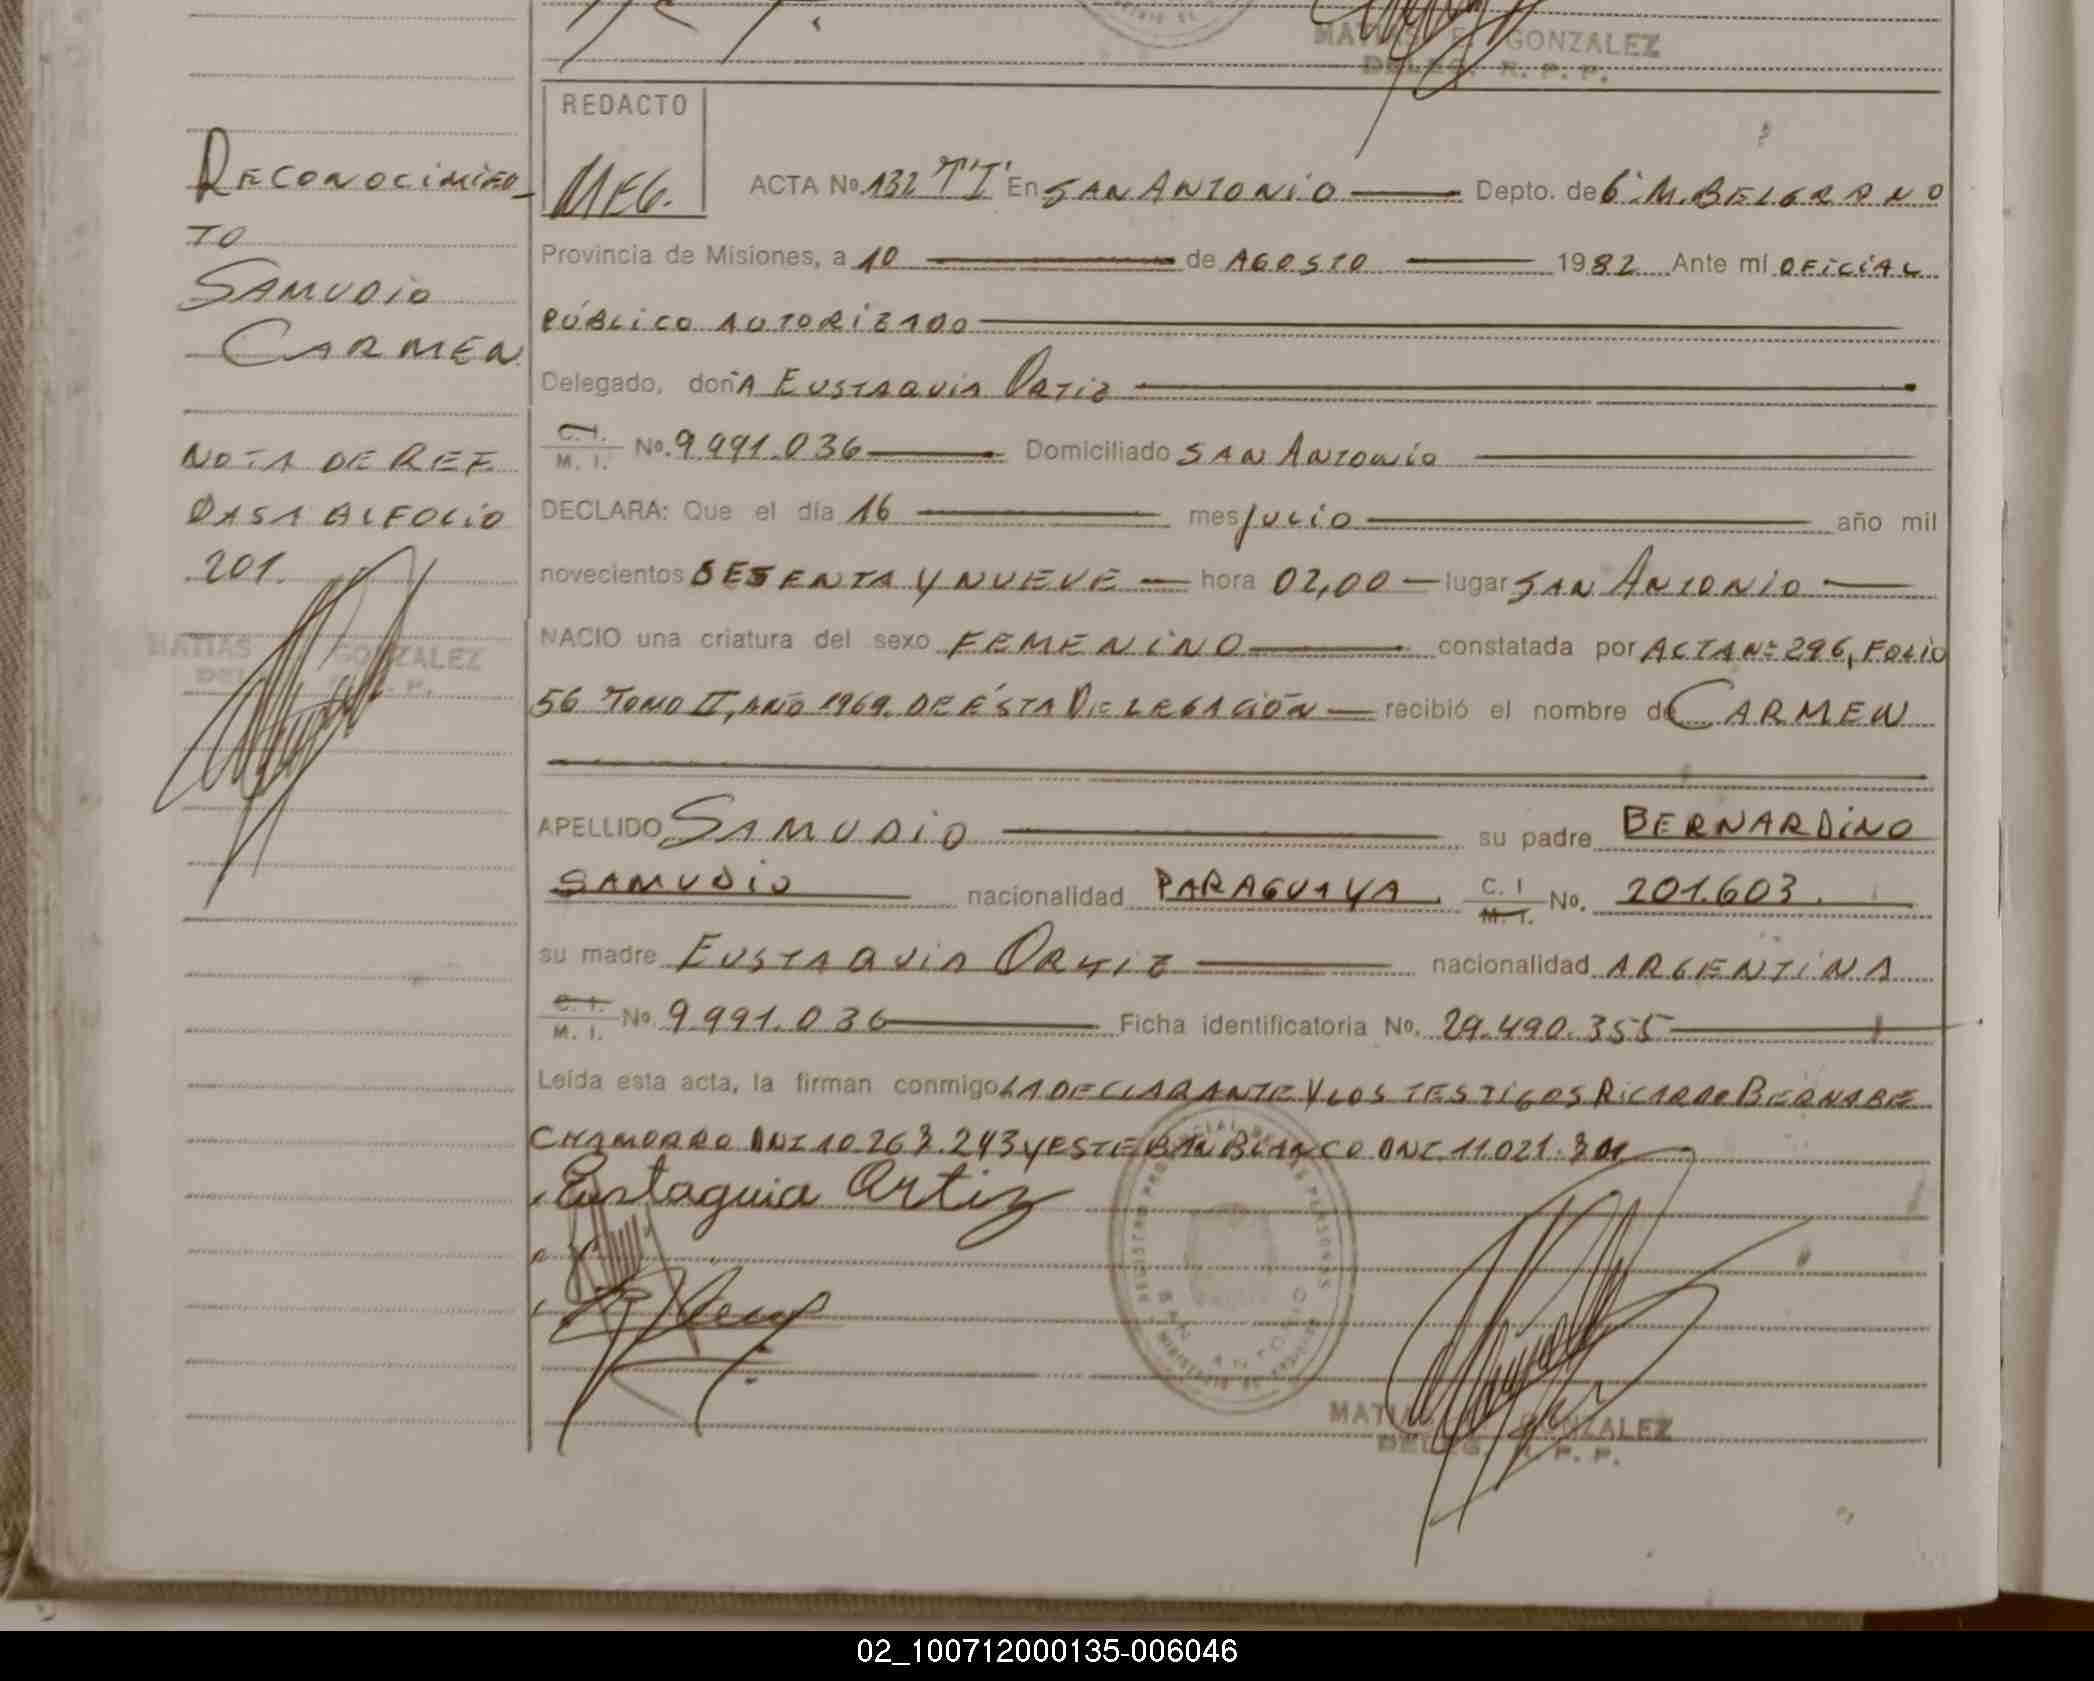 MATIAS E. GONZALEZ
DELEG. R. P. P.
REDACTO
MEG.
RECONOCIMIEN-
TO
SAMUDIO
CARMEN
NOTA DE REF.
PASA AL FOLIO
201.
MATIAS GONZALEZ
DEL P.
ACTA No. 132 TI En SAN ANTONIO Depto. de G. M. BELGRANO
Provincia de Misiones, a 10 de AGOSTO 1982 Ante mí OFICIAL
PÚBLICO AUTORIZADO
Delegado, doñA EUSTAQUIA ORTIZ
C. I. M. I. No. 9.991.036 Domiciliado SAN ANTONIO
DECLARA: Que el día 16 mes JULIO año mil
novecientos SESENTA Y NUEVE hora 02,00 lugar SAN ANTONIO
NACIO una criatura del sexo FEMENINO constatada por ACTA Nº 296, FOLIO
56 TOMO II, AÑO 1969. DE ÉSTA DELEGACIÓN recibió el nombre de CARMEN
APELLIDO SAMUDIO su padre BERNARDINO
SAMUDIO nacionalidad PARAGUAYA C. I M. I. No. 201.603.
su madre EUSTAQUIA ORTIZ nacionalidad ARGENTINA
C. I. M. I. No. 9.991.036 Ficha identificatoria No. 29.490.355
Leída esta acta, la firman conmigo LA DECLARANTE Y LOS TESTIGOS RICARDO BERNABE
CHAMORRO DNI 10.263.243 Y ESTEBAN BLANCO DNI. 11.021.301
Eustaquia Ortiz
REGISTRO PROVINCIAL DE LAS PERSONAS
SAN ANTONIO
MATIAS GONZALEZ
DELEG. R. P. P.
02_100712000135-006046